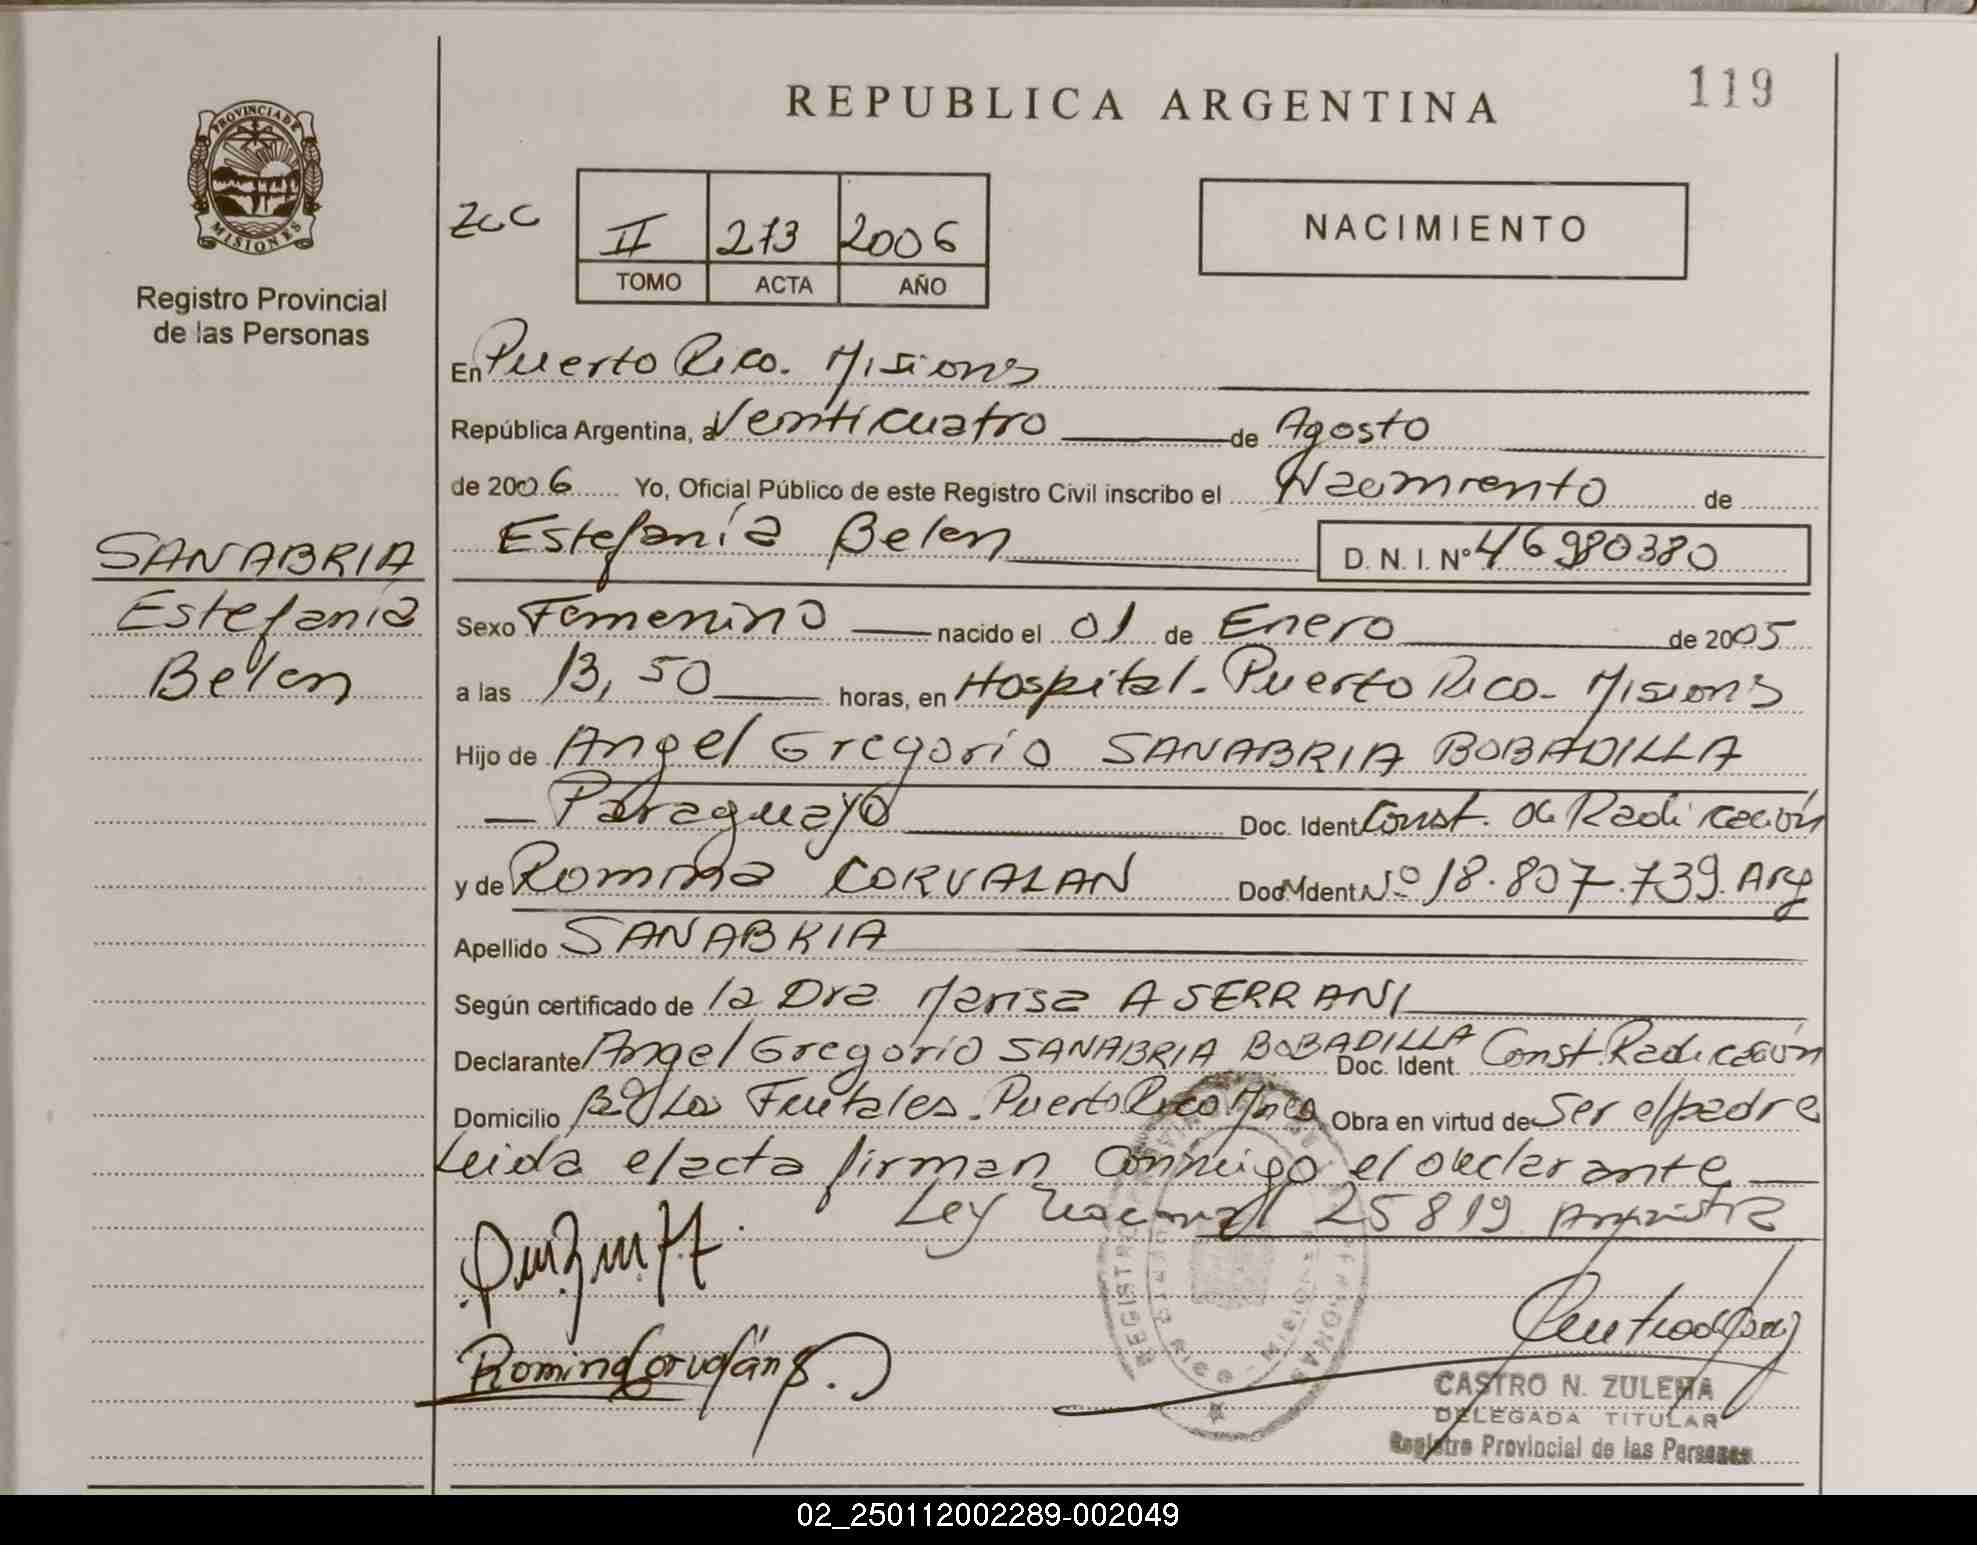 REPUBLICA ARGENTINA
119
PROVINCIA DE
MISIONES
Registro Provincial
de las Personas
ZCC
II 273 2006
TOMO ACTA AÑO
NACIMIENTO
En Puerto Rico. Misiones
República Argentina, a Veinticuatro de Agosto
de 2006 Yo, Oficial Público de este Registro Civil inscribo el Nacimiento de
Estefanía Belen D. N. I. Nº 46980380
SANABRIA
Estefanía
Belen
Sexo Femenino nacido el 01 de Enero de 2005
a las 13,50 horas, en Hospital - Puerto Rico - Misiones
Hijo de Angel Gregorio SANABRIA BOBADILLA
Paraguayo Doc. Ident Const. de Radicación
y de Romina CORVALAN Doc. Ident Nº 18.807.739. Arg
Apellido SANABRIA
Según certificado de la Dra Marisa A SERRANI
Declarante Angel Gregorio SANABRIA BOBADILLA Doc. Ident. Const. Radicación
Domicilio Bº Los Frutales. Puerto Rico Mnes Obra en virtud de Ser el padre
Leida el acta firman conmigo el declarante
Ley Nacional 25819
Romina Corvalán
REGISTRO PROVINCIAL DE LAS PERSONAS
PUERTO RICO - MISIONES
CASTRO N. ZULEMA
DELEGADA TITULAR
Registro Provincial de las Personas
02_250112002289-002049